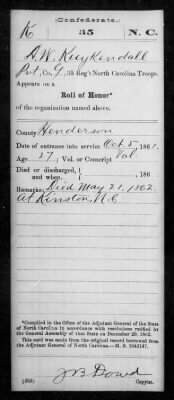 (Confederate.)
K 35 N.C.
D. W. Kuykendall
Pvt, Co. G, 35 Reg't North Carolina Troops.
Appears on a
Roll of Honor*
of the organization named above.
County Henderson
Date of entrance into service Oct 5, 1861.
Age 17, Vol. or Conscript Vol
Died or discharged, and when. , 186 .
Remarks: Died May 21, 1862
At Kinston, N.C
*Compiled in the Office of the Adjutant General of the State
of North Carolina in accordance with resolutions ratified by
the General Assembly of that State on December 20, 1862.
This card was made from the original record borrowed from
the Adjutant General of North Carolina.—M. S.
(635)
J B Dowd
Copyist.